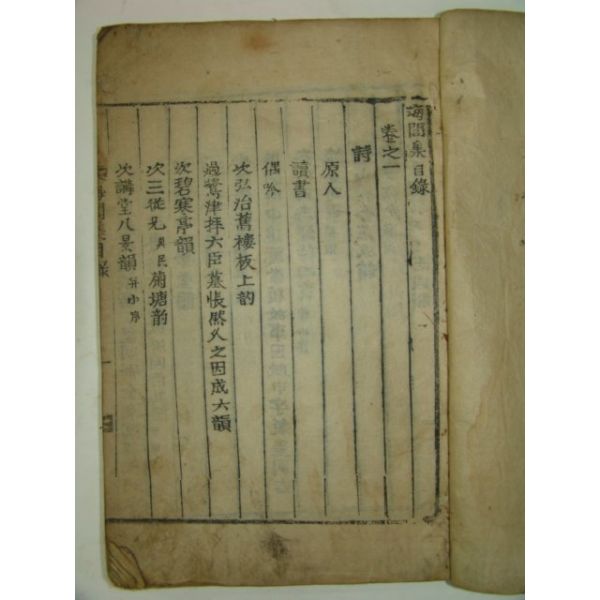 海閣集目錄
卷之一
詩
原人
讀書
偶吟
次弘治舊樓板上韵
過鷺津拜六臣墓悵然久之因成六韻
次碧寒亭韻
次三從兄員民菊塘韵
次講堂八景韻并小序
集目錄